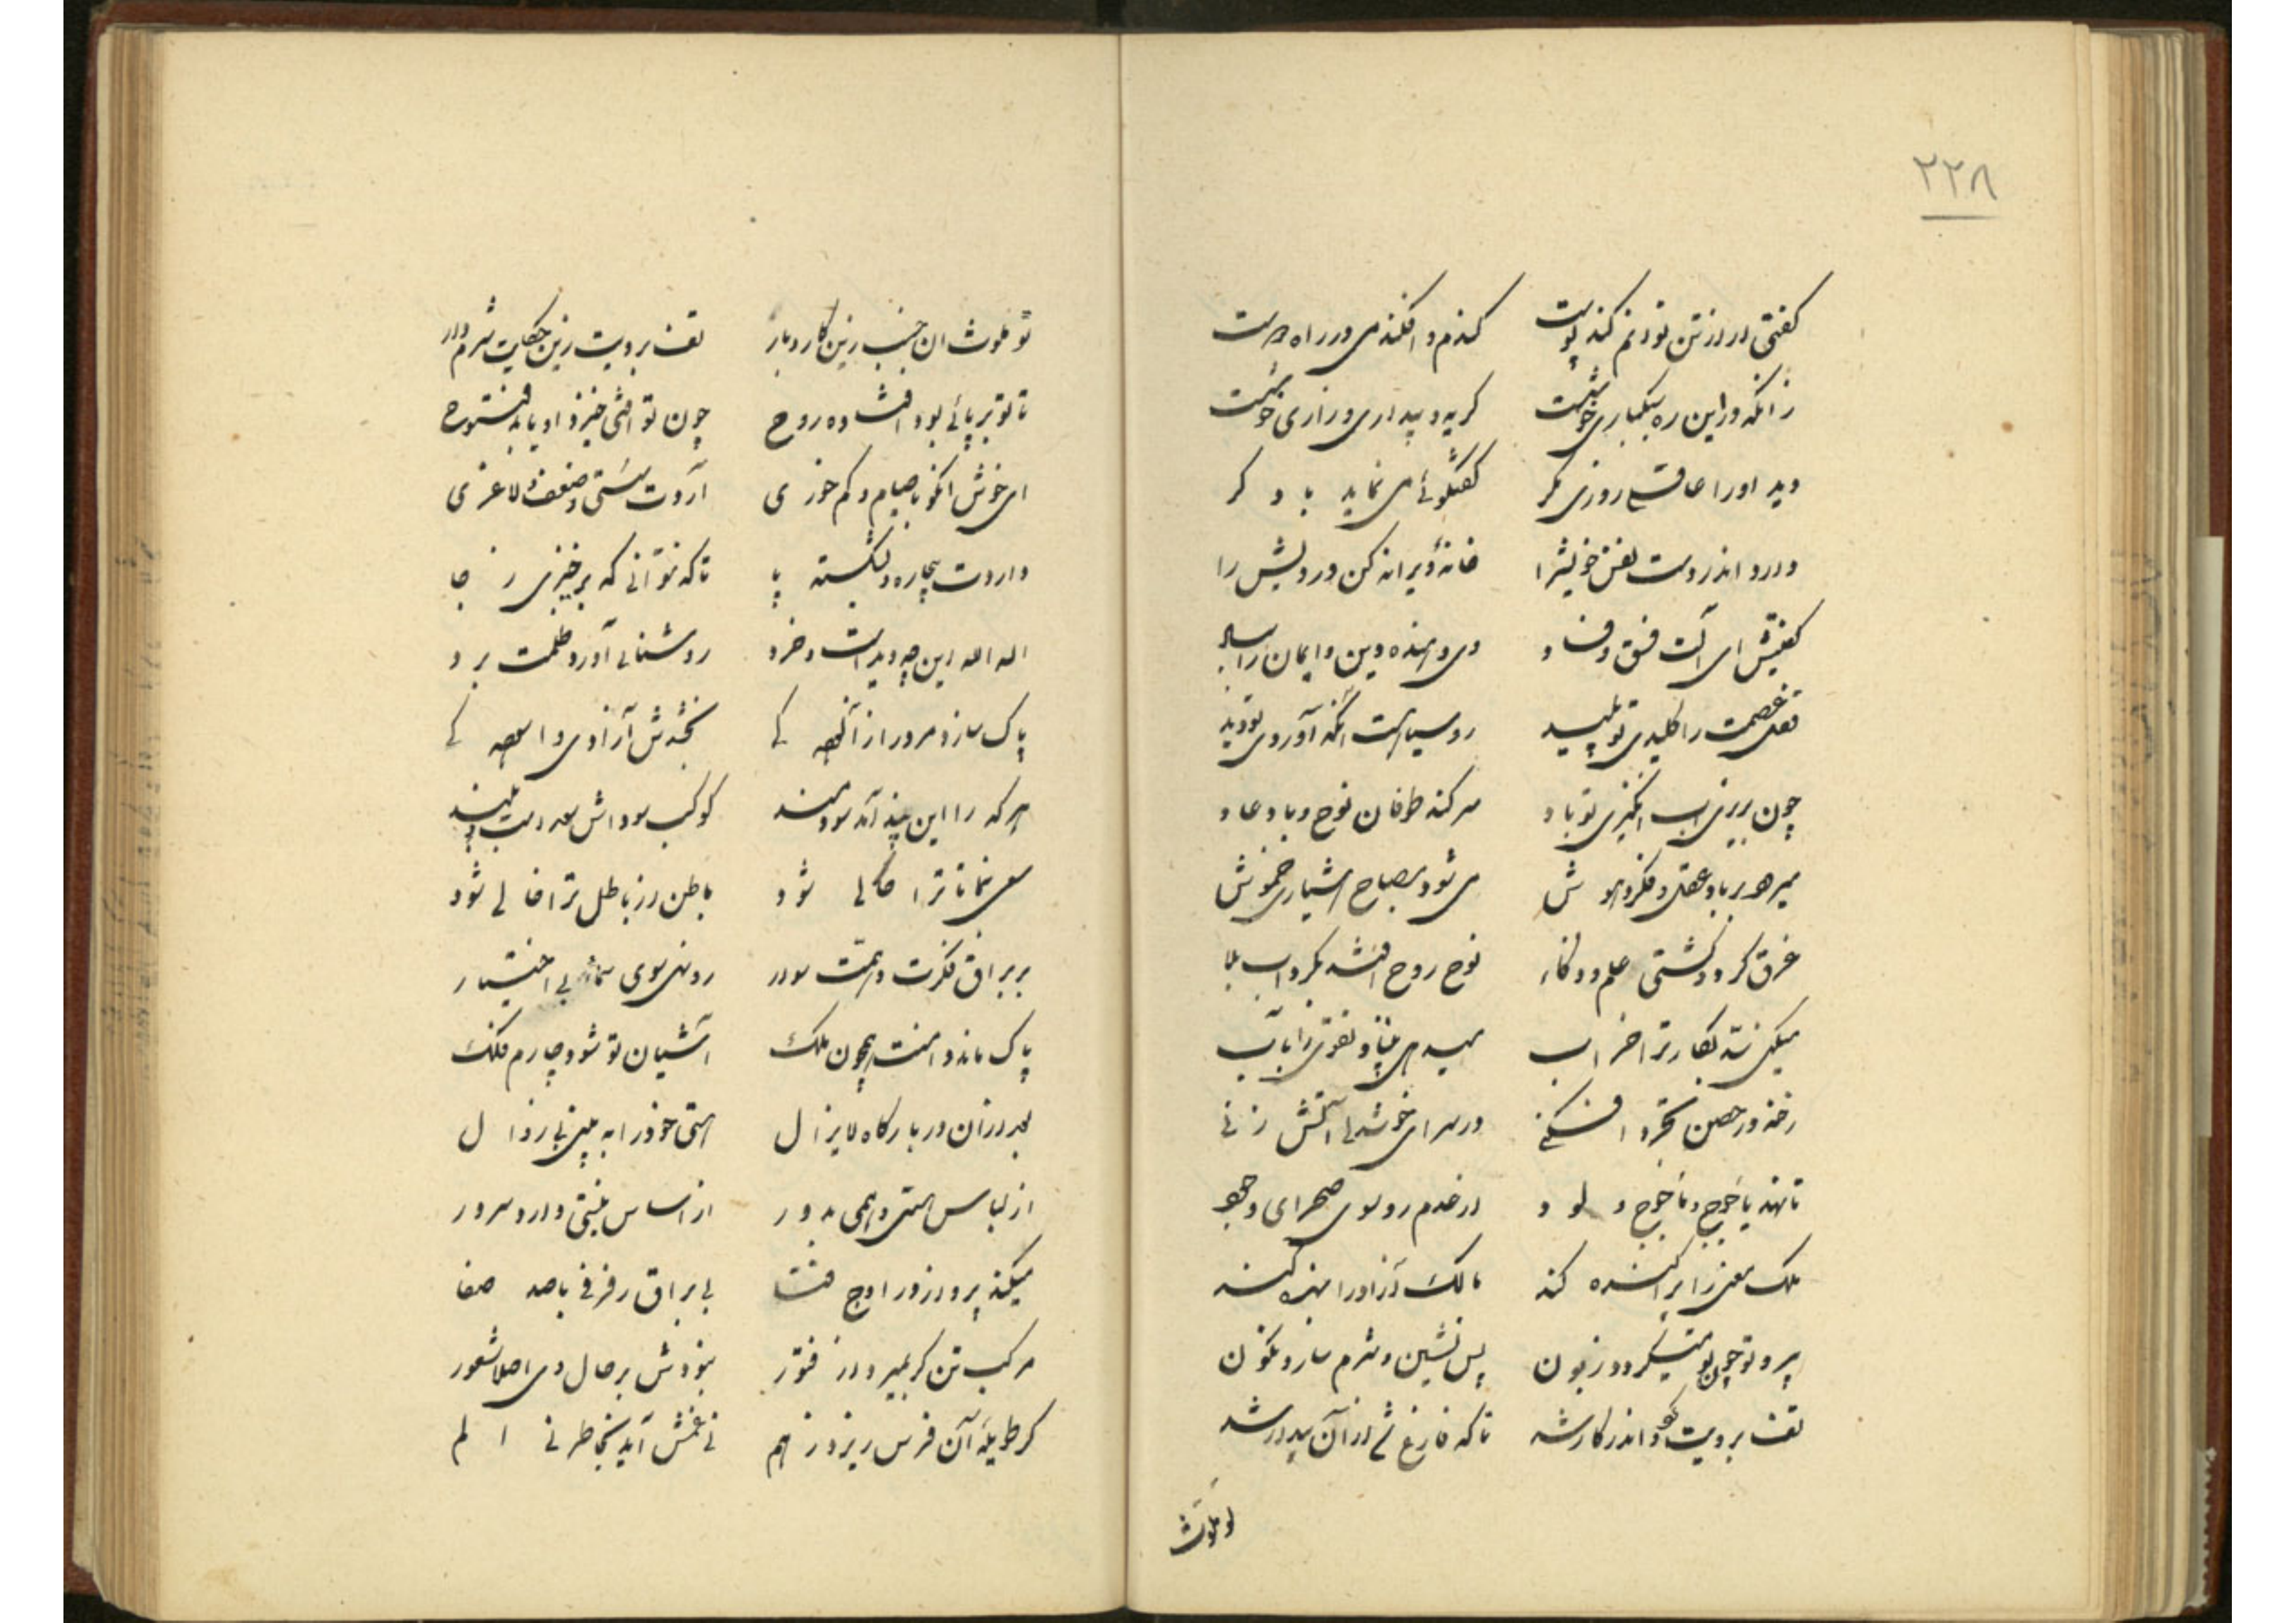 ۲۲۸
گفتی از تن تو دنم کند پوست کندم و افکندمی در راه دوست
زانکه در این ره سیکباری خوشست گریه و بیداری و زاری خوشست
دید او را عاقلی روزی مگر گفتگوئی می نماید با دگر
دارد اندر دست نفس خویش را خانه ویرانه کن درویش را
گفتش ای آلت فسق و فساد وی دهنده دین و ایمان را
عصمت را کلیدی تو پلید روسیاهست آنکه آوردی تو دید
چون بریزی آب انگیزی تو باد سر کند طوفان نوح و باد عاد
میدهد بر باد عقل و فکر و هوش می شود مصباح هشیاری خموش
غرق گردد کشتی علم و ذکاء نوح روح افتد بگرداب بلا
میکنی تقا را خراب میدهی بنیاد تقوی را بآب
رخنه در حصن تجرد افکنی در سرای خوشدلی آتش زنی
تا نهد یاجوج و ماجوج و لود از عدم رو سوی صحرای وجود
ملک معنی را پراکنده کند مالک آزاد را بنده کند
پیرو تو چون تو میگردد زبون پس نشین و شرم سار و نگون
تف برویت گو اندر کار شد تا که فارغ از آن بیدار شد
تو ملوث
تو ملوث ان جنب زین کار و بار تف برویت زین حکایت شرم دار
تا تو بر پائی بود افتاده روح چون تو افتی خیزد او یابد فتوح
ای خوش انکو با صیام و کم خوری آردت سستی و ضعف و لاغری
داردت بیچاره و شکسته پا تا که نتوانی که برخیزی ز جا
الله الله این چه دیداست و خرد روشنائی آورد ظلمت برد
پاک سازد مرد را از آنهمه بخشدش آزادی و
هر که را این پند آمد سودمند کوکب بلند
سعی نما تا ترا حالی شود باطن از باطل ترا خالی شود
بر براق فکرت و همت سوار رو نهی سوی سما بی اختیار
پاک ماند دامنت همچون ملک آشیان تو شود چارم فلک
بعد از آن در بارگاه لایزال هستی خود را به بینی بی زوال
از لباس هستی و همی بدور از اساس نیستی دارد سرور
میکند پرواز در اوج فنا بی براق رفرفی باصد صفا
مرکب تن گر بمیرد از فتور نبودش بر حال وی اصلا شعور
گر طویله آن فرس ریزد ز هم نی غمش آید بخاطر نی الم